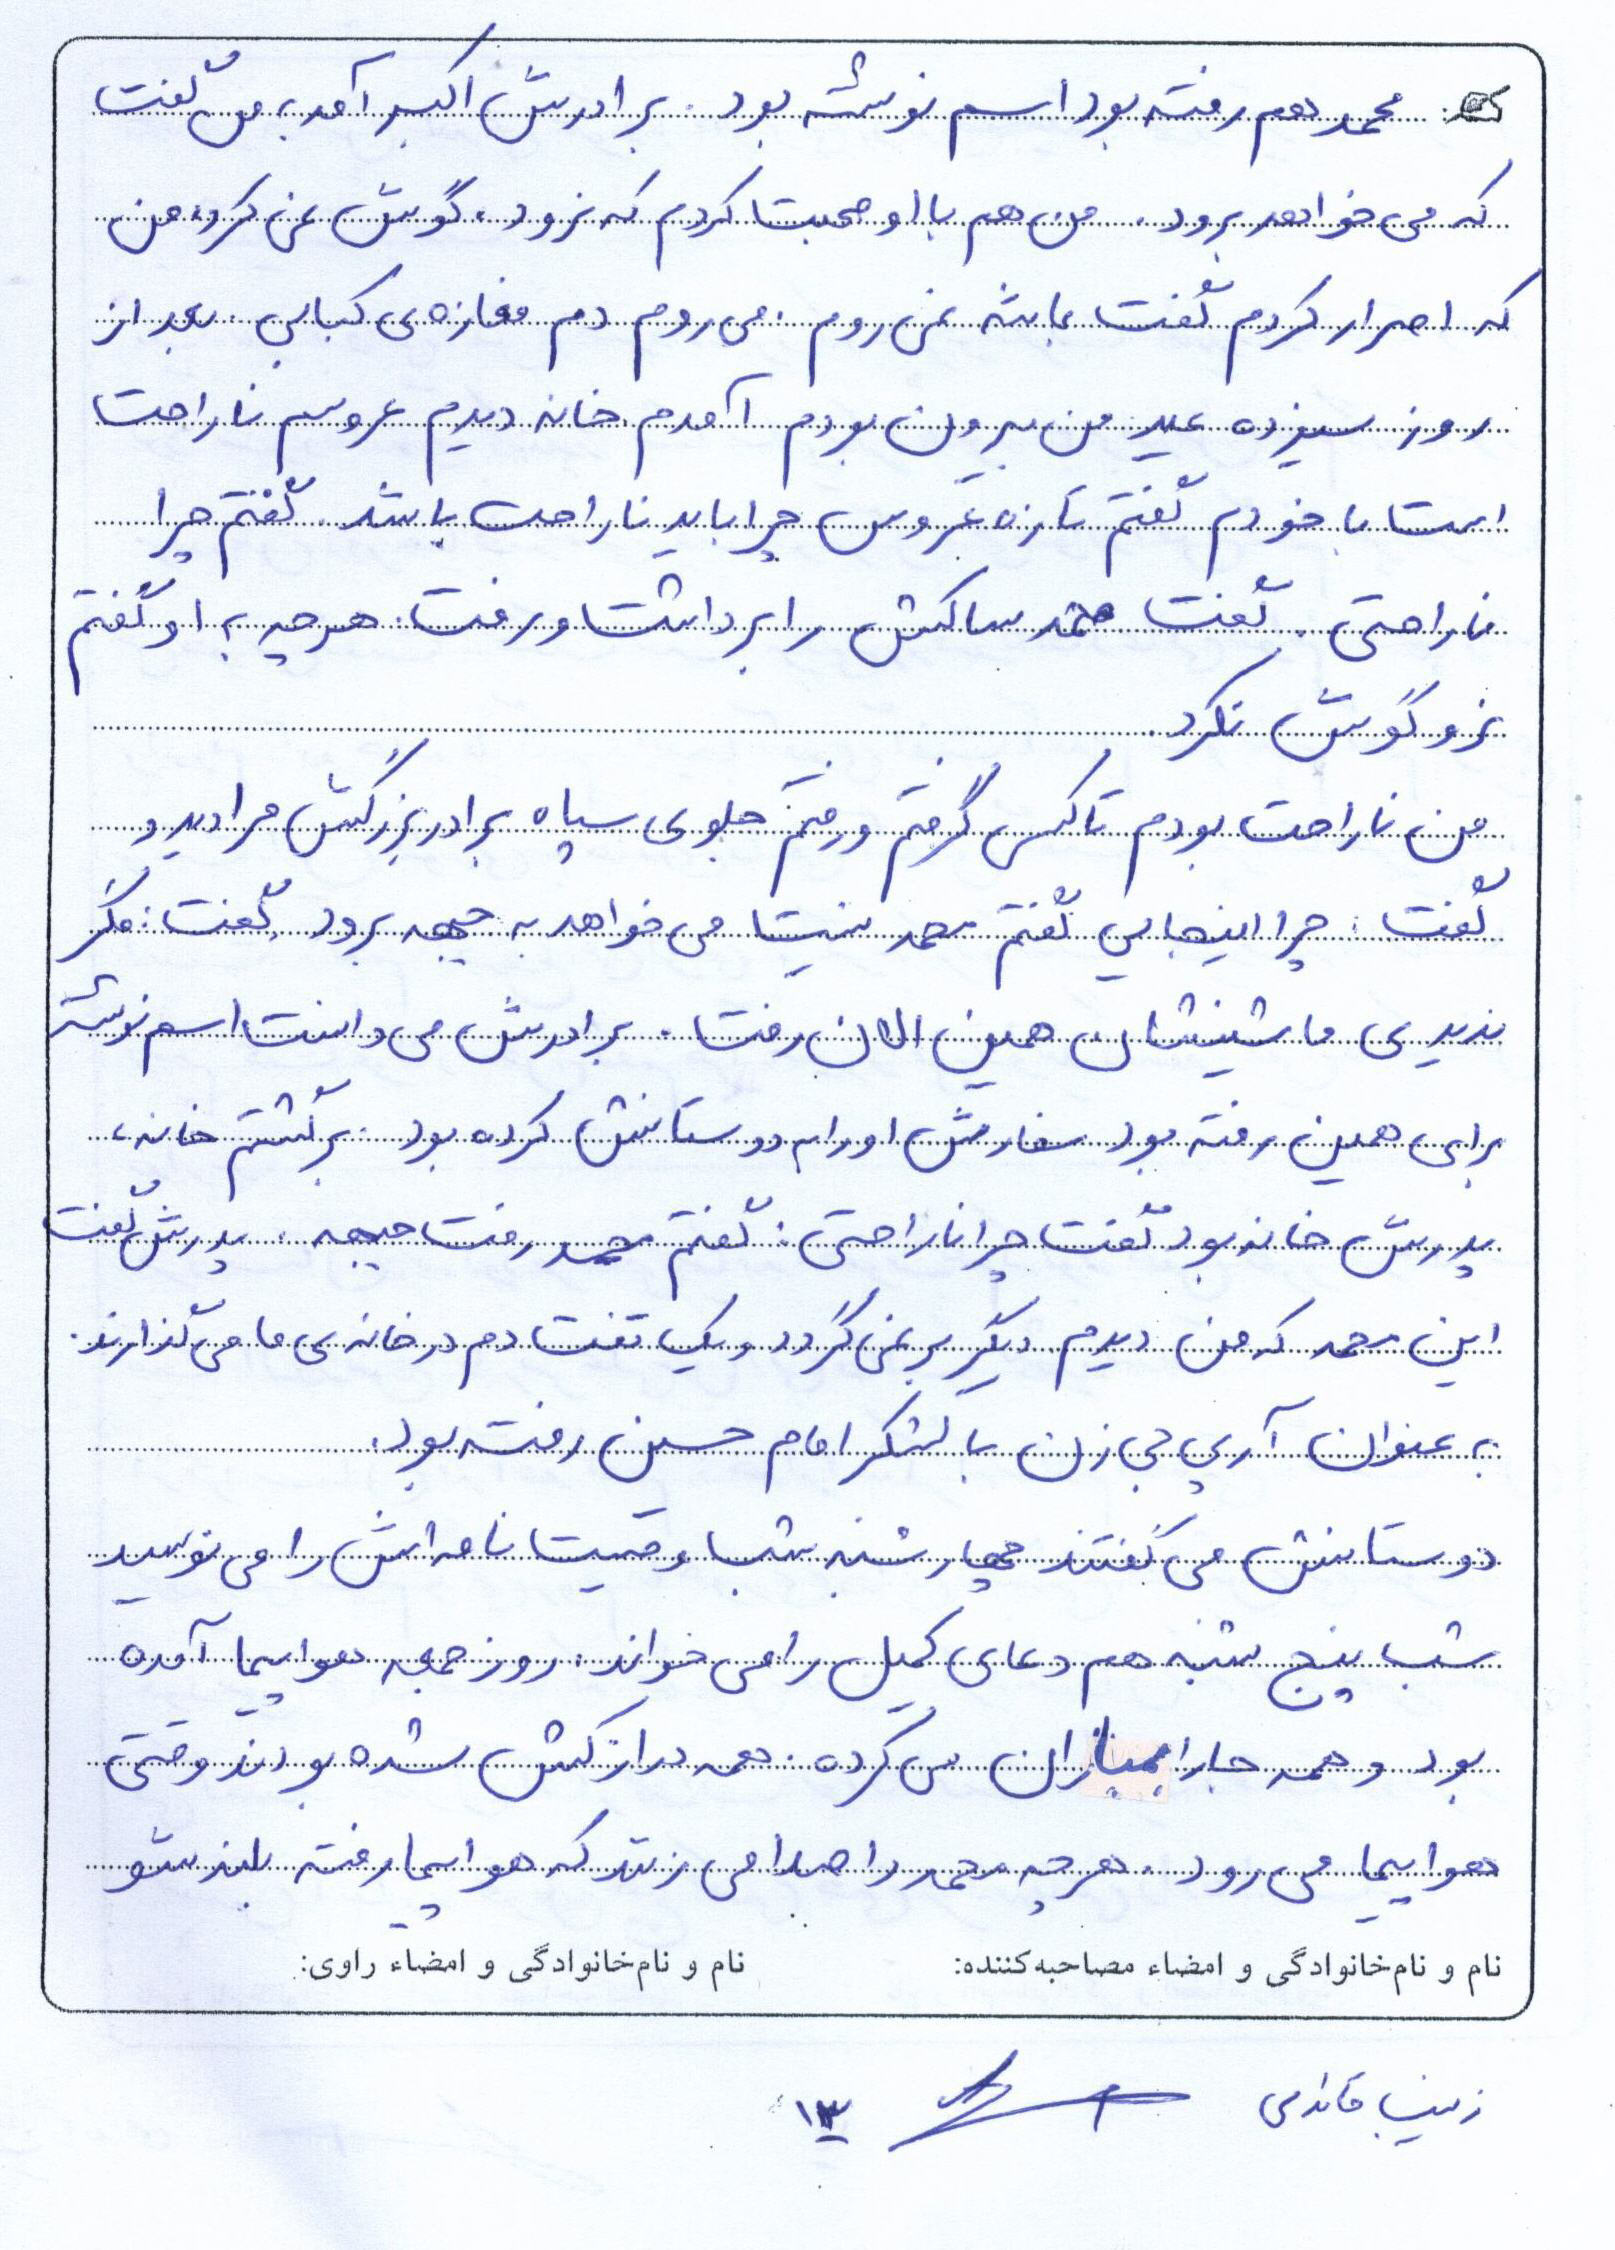 محمد هم رفته بود اسم نوشته بود. برادرش اکبر آمد به من گفت
که می‌خواهد برود. من هم با او صحبت کردم که نرود، گوش نمی‌کرد، من
که اصرار کردم گفت باشه نمی‌روم. می‌روم دم مغازه‌ی کبابی. بعد از
روز سیزده عید من بیرون بودم آمدم خانه دیدم عروسم ناراحت
است با خودم گفتم تازه عروس چرا باید ناراحت باشد. گفتم چرا
ناراحتی. گفت محمد ساکش را برداشت و رفت. هر چه به او گفتم
نرو گوش نکرد.
من ناراحت بودم تاکسی گرفتم و رفتم جلوی سپاه برادر بزرگش مرا دید و
گفت: چرا اینجایی گفتم محمد نیست می‌خواهد به جبهه برود گفت: مگر
ندیدی ماشینشان همین الان رفت. برادرش می‌دانست اسم نوشته
برای همین رفته بود سفارش او را به دوستانش کرده بود. برگشتم خانه،
پدرش خانه بود گفت چرا ناراحتی: گفتم محمد رفت جبهه. پدرش گفت
این محمد که من دیدم دیگر بر نمی‌گردد و یک تفت دم در خانه‌ی ما می‌گذارند.
به عنوان آرپی جی زن با لشکر امام حسین رفته بود.
دوستانش می‌گفتند چهارشنبه شب وصیت نامه‌اش را می‌نویسد
شب پنج شنبه هم دعای کمیل را می‌خواند. روز جمعه هواپیما آمده
بود و همه جا را بمباران می‌کرده. همه درازکش شده بودند وقتی
هواپیما می‌رود. هر چه محمد را صدا می‌زنند که هواپیما رفته بلند شو
نام و نام‌خانوادگی و امضاء مصاحبه‌کننده: نام و نام‌خانوادگی و امضاء راوی:
زینب ۱۳